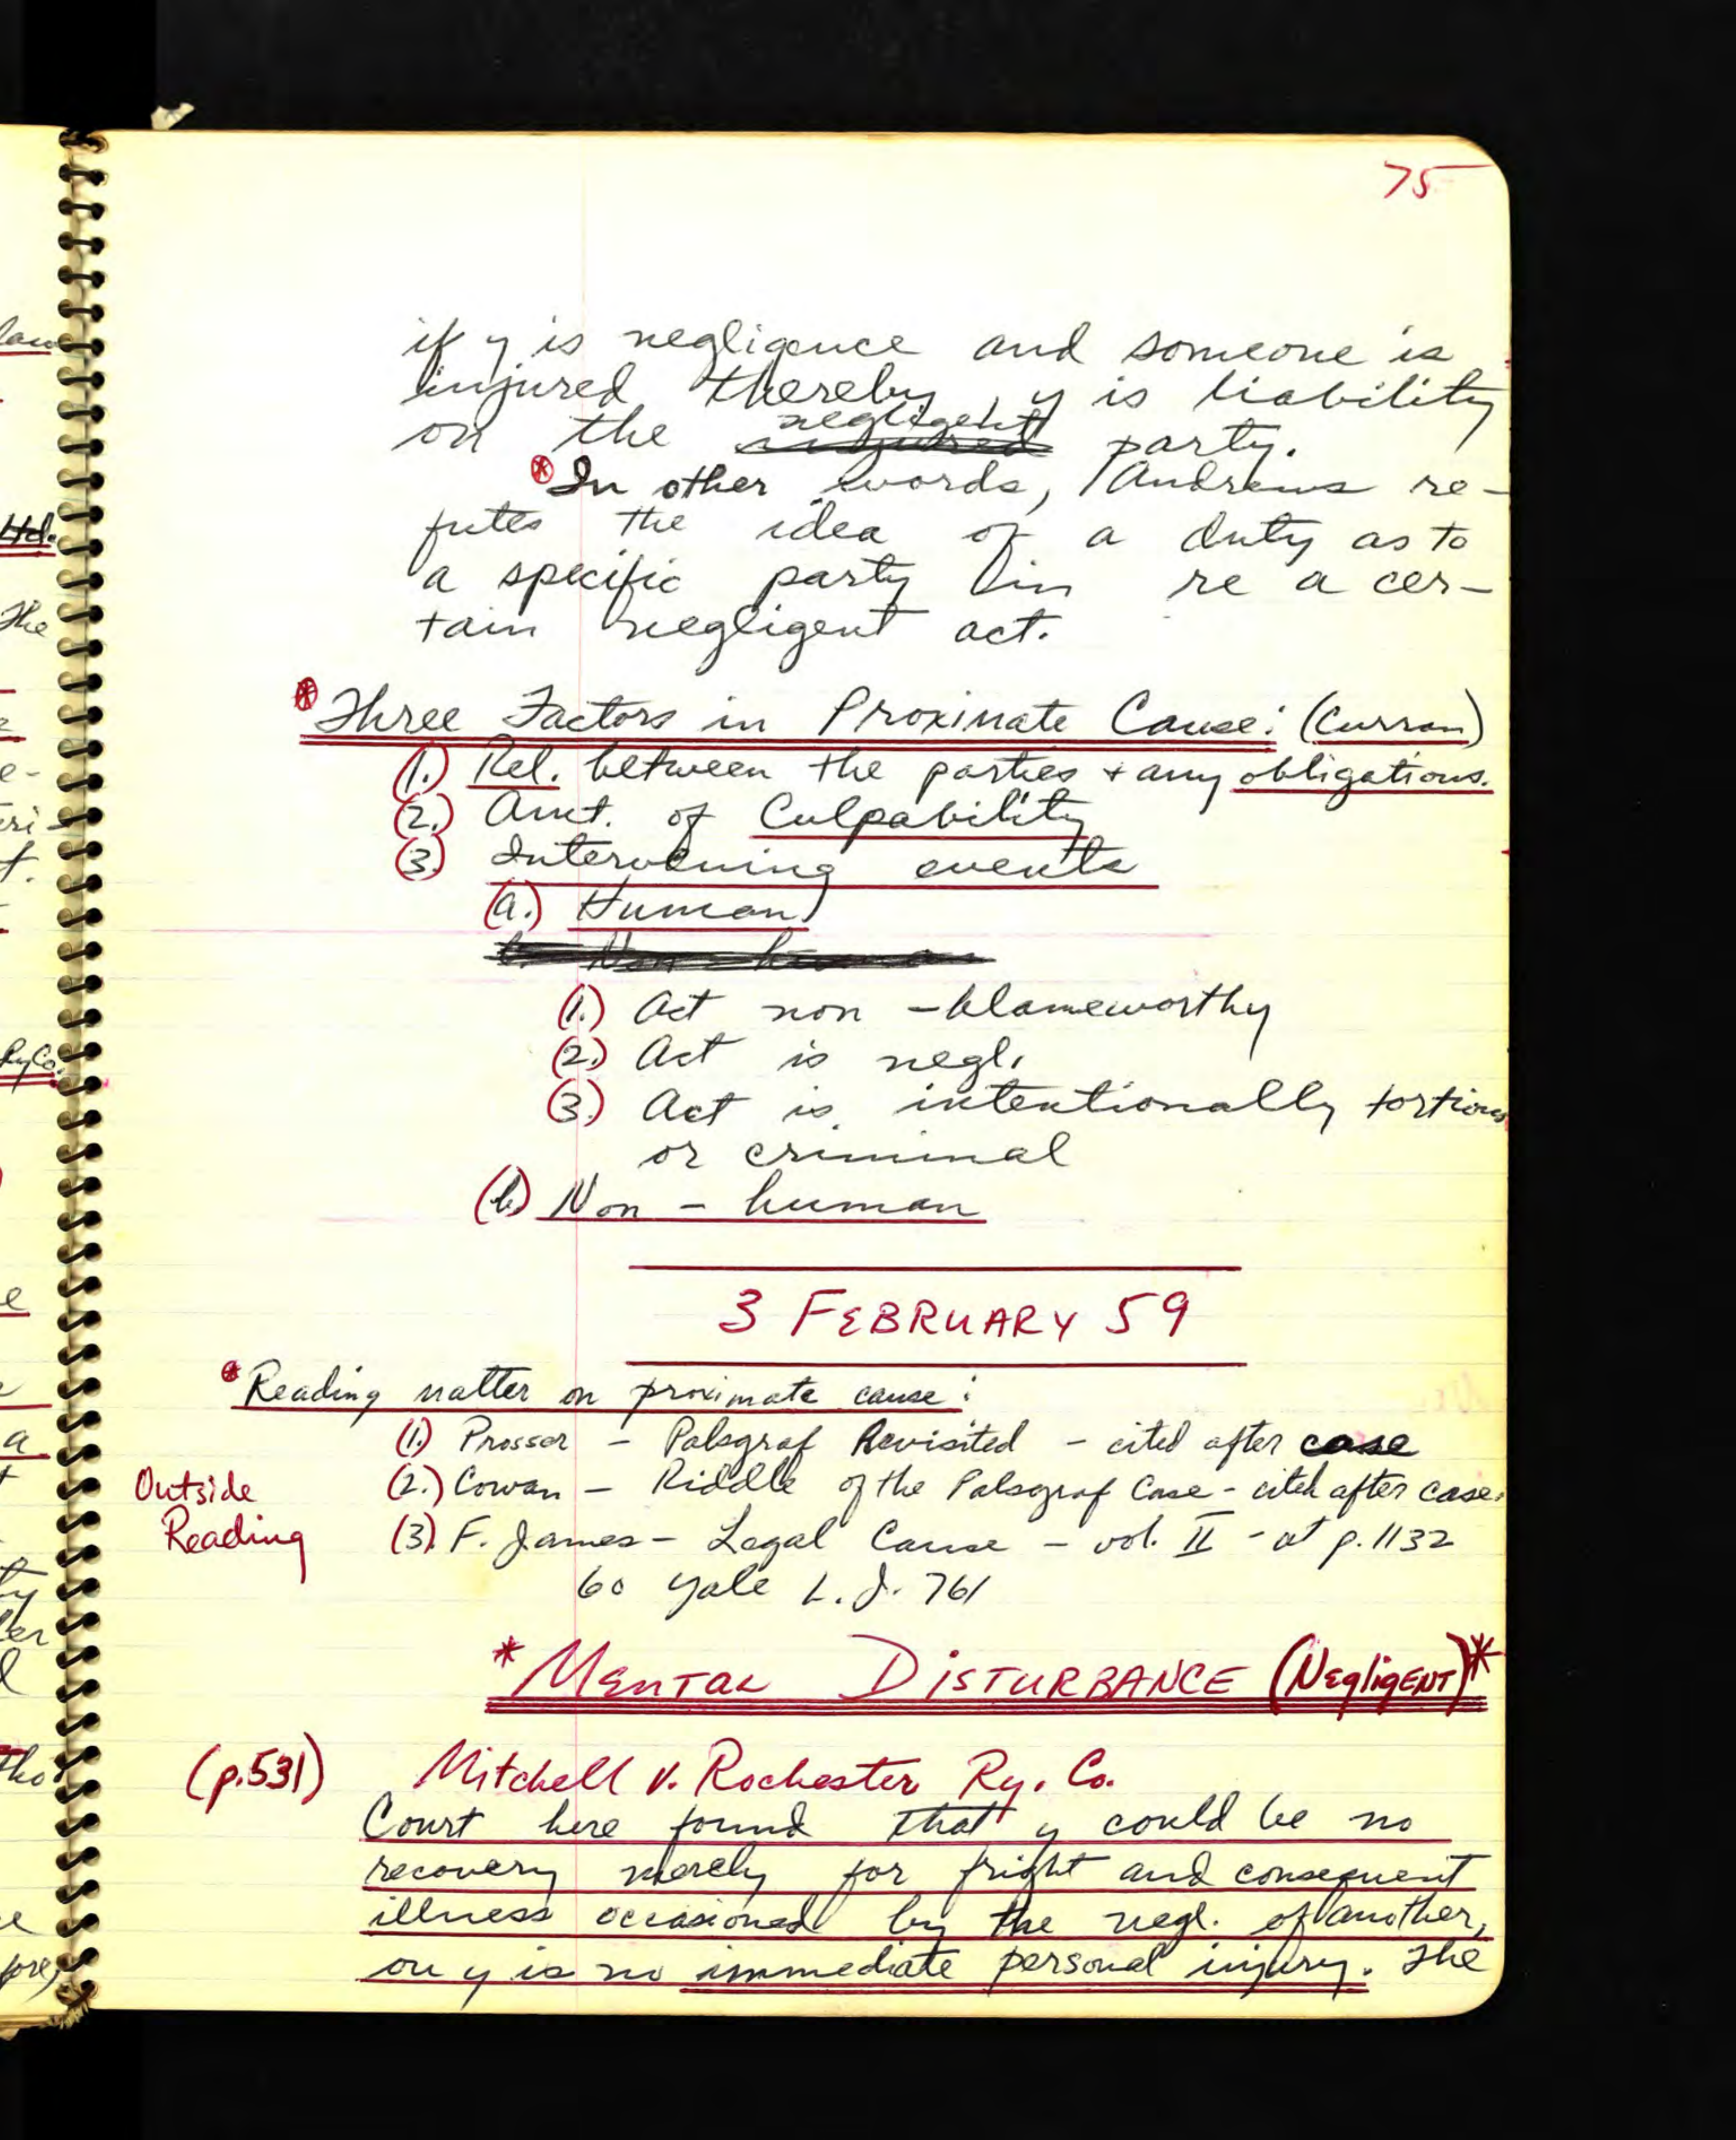 75
if y is negligence and someone is
injured thereby, y is liability
on the negligent party.
* In other words, Andrews re-
futes the idea of a duty as to
a specific party in re a cer-
tain negligent act.
* Three Factors in Proximate Cause: (Curran)
(1.) Rel. between the parties + any obligations.
(2.) Amt. of Culpability
(3.) Intervening events
(a.) Human
b. Non-human
(1.) Act non-blameworthy
(2.) Act is negl.
(3.) Act is intentionally tortious
or criminal
(b) Non-human
3 FEBRUARY 59
* Reading matter on proximate cause:
(1.) Prosser - Palsgraf Revisited - cited after case
(2.) Cowan - Riddle of the Palsgraf Case - cited after case.
Outside
Reading
(3). F. James - Legal Cause - vol. II - at p. 1132
60 Yale L.J. 761
* MENTAL DISTURBANCE (NEgligENT) *
(p.531) Mitchell v. Rochester Ry. Co.
Court here found that y could be no
recovery merely for fright and consequent
illness occasioned by the negl. of another,
on y is no immediate personal injury. The
law
Htd.
The
e-
eri-
t.
Ry Co.
e
a
t
ty
ler
l
tho
e
fore,